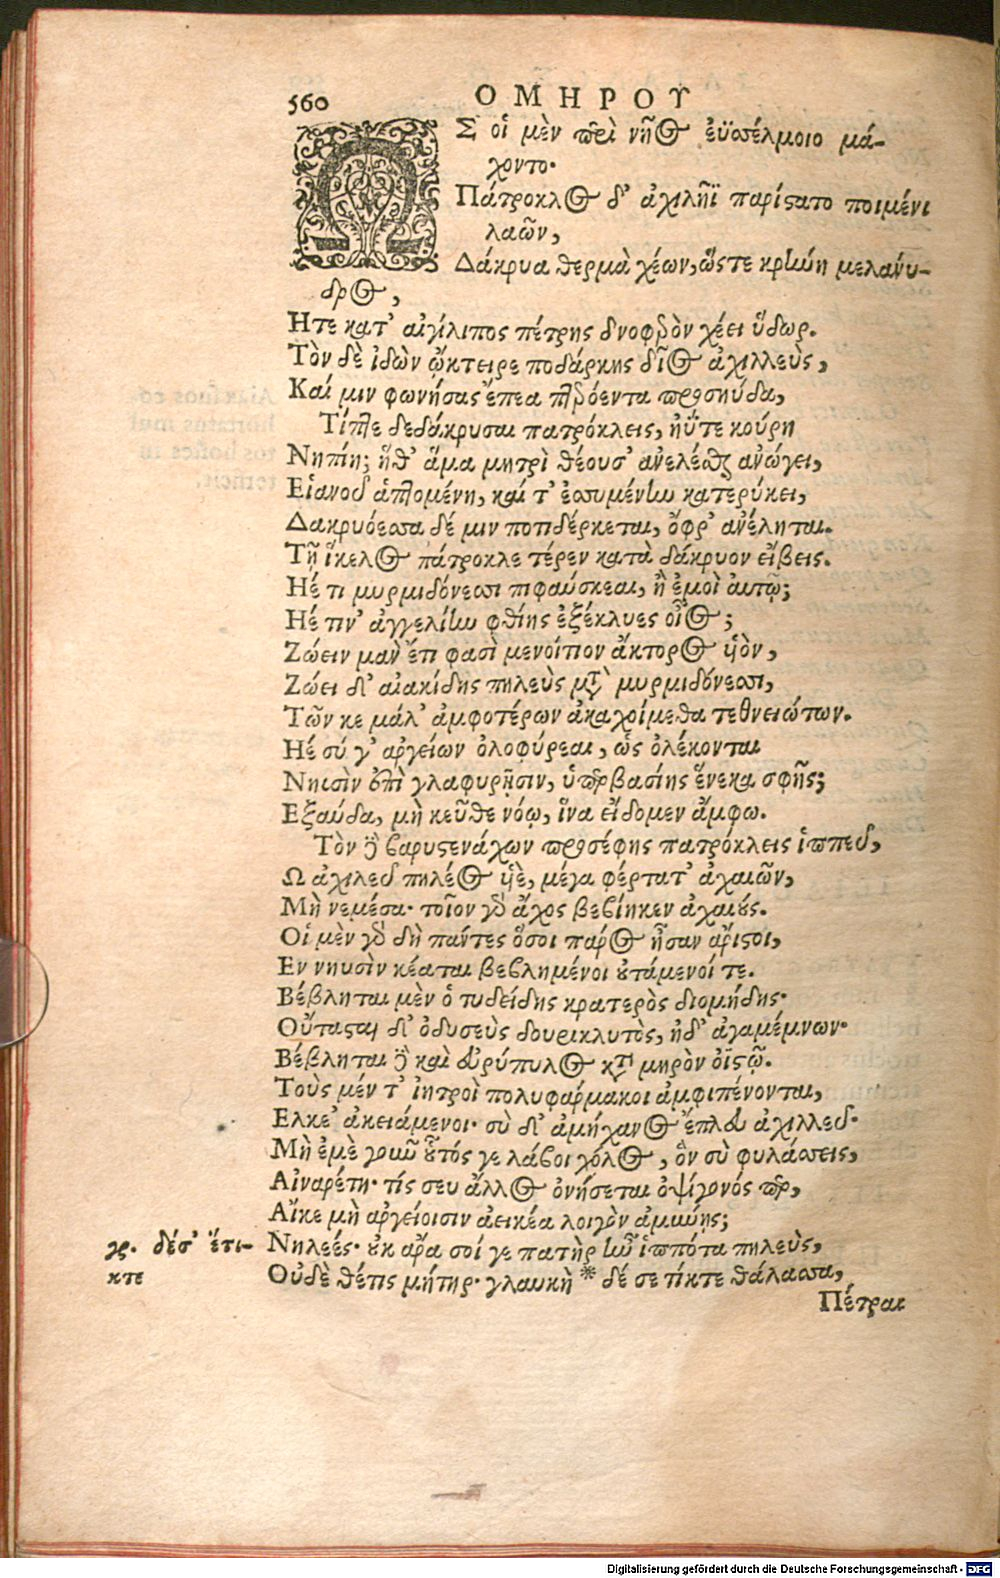 560 ΟΜΗΡΟΥ
ΩΣ οἱ μὲν περὶ νηὸς ἐϋσσέλμοιο μά-
χοντο·
Πάτροκλος δ' ἀχιλῆϊ παρίστατο ποιμένι
λαῶν,
Δάκρυα θερμὰ χέων, ὥστε κρήνη μελάνυ-
δρος,
Ητε κατ' αἰγίλιπος πέτρης δνοφερὸν χέει ὕδωρ.
Τὸν δὲ ἰδὼν ᾤκτειρε ποδάρκης δῖος ἀχιλλεὺς,
Καί μιν φωνήσας ἔπεα πτερόεντα προσηύδα,
Τίπτε δεδάκρυσαι πατρόκλεις, ἠΰτε κούρη
Νηπίη; ἥθ' ἅμα μητρὶ θέουσ' ἀνελέσθαι ἀνώγει,
Εἱανοῦ ἁπτομένη, καί τ' ἐσσυμένην κατερύκει,
Δακρυόεσσα δέ μιν ποτιδέρκεται, ὄφρ' ἀνέληται.
Τῇ ἴκελος πάτροκλε τέρεν κατὰ δάκρυον εἴβεις.
Ηέ τι μυρμιδόνεσσι πιφαύσκεαι, ἢ ἐμοὶ αὐτῷ;
Ηέ τιν' ἀγγελίην φθίης ἐξέκλυες οἶος;
Ζώειν μὰν ἔτι φασὶ μενοίτιον ἄκτορος υἱὸν,
Ζώει δ' αἰακίδης πηλεὺς μετὰ μυρμιδόνεσσι,
Τῶν κε μάλ' ἀμφοτέρων ἀκαχοίμεθα τεθνειώτων.
Ηέ σύ γ' ἀργείων ὀλοφύρεαι, ὡς ὀλέκονται
Νηυσὶν ἐπὶ γλαφυρῇσιν, ὑπερβασίης ἕνεκα σφῆς;
Εξαύδα, μὴ κεῦθε νόῳ, ἵνα εἴδομεν ἄμφω.
Τὸν δὲ βαρυστενάχων προσέφης πατρόκλεις ἱππεῦ,
Ω ἀχιλεῦ πηλέος υἱὲ, μέγα φέρτατ' ἀχαιῶν,
Μὴ νεμέσα· τοῖον γὰρ ἄχος βεβίηκεν ἀχαιούς.
Οἱ μὲν γὰρ δὴ πάντες ὅσοι πάρος ἦσαν ἄριστοι,
Εν νηυσὶν κέαται βεβλημένοι οὐτάμενοί τε.
Βέβληται μὲν ὁ τυδείδης κρατερὸς διομήδης·
Οὔτασται δ' ὀδυσεὺς δουρικλυτὸς, ἠδ' ἀγαμέμνων·
Βέβληται δὲ καὶ εὐρύπυλος κατὰ μηρὸν ὀϊστῷ.
Τοὺς μέν τ' ἰητροὶ πολυφάρμακοι ἀμφιπένονται,
Ελκε' ἀκειάμενοι· σὺ δ' ἀμήχανος ἔπλευ ἀχιλλεῦ·
Μὴ ἐμὲ γοῦν οὗτός γε λάβοι χόλος, ὃν σὺ φυλάσσεις,
Αἰναρέτη· τίς σευ ἄλλος ὀνήσεται ὀψίγονός περ,
Αἴκε μὴ ἀργείοισιν ἀεικέα λοιγὸν ἀμύνῃς;
Νηλεές· οὐκ ἄρα σοί γε πατὴρ ἦν ἱππότα πηλεὺς,
γρ. δέσ' ἔτι-
κτε
Οὐδὲ θέτις μήτηρ· γλαυκὴ * δέ σε τίκτε θάλασσα,
Πέτραι
Digitalisierung gefördert durch die Deutsche Forschungsgemeinschaft - DFG